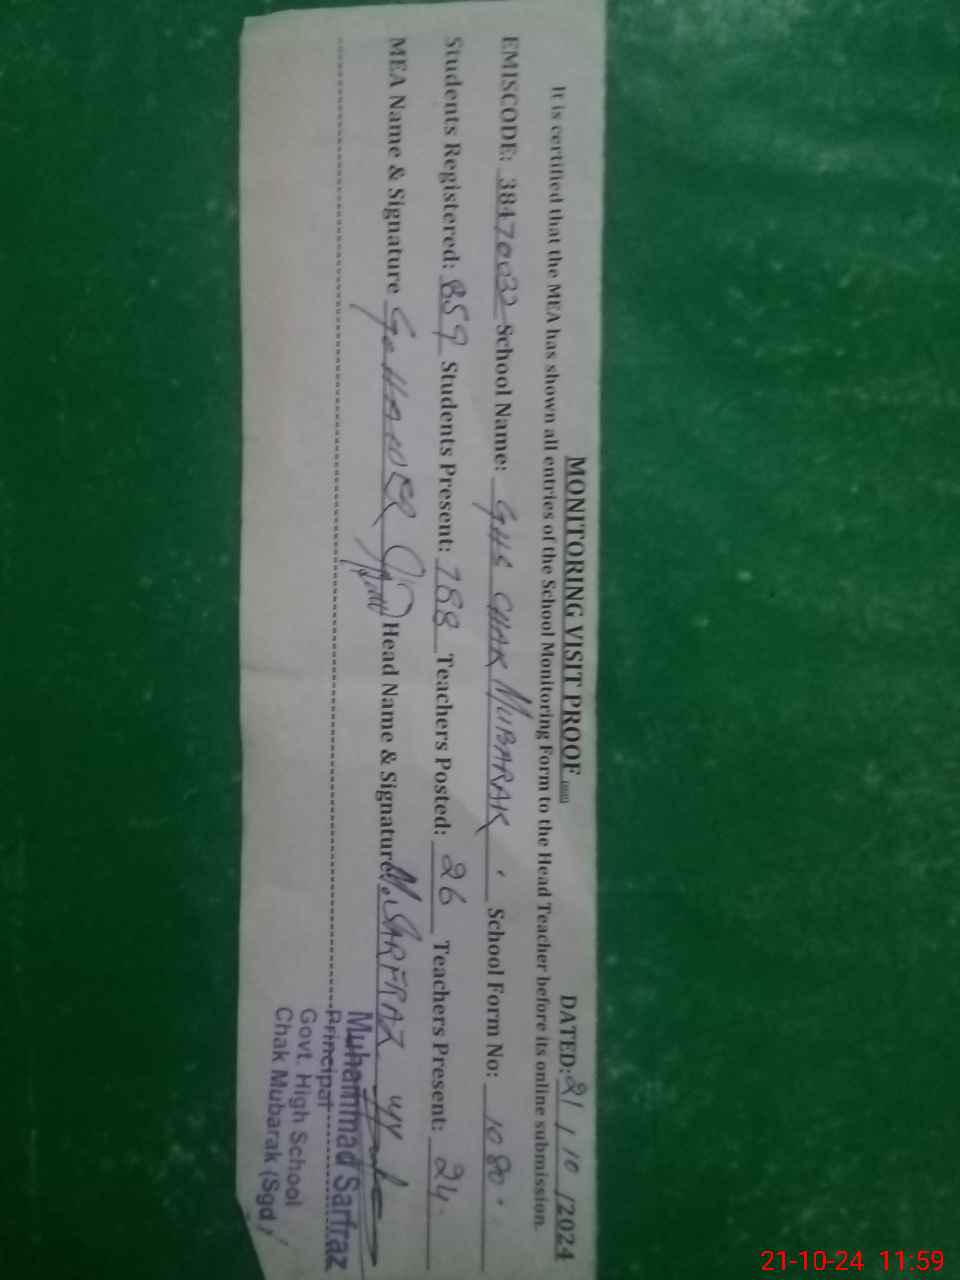 MONITORING VISIT PROOF
DATED: 21 / 10 /2024
It is certified that the MEA has shown all entries of the School Monitoring Form to the Head Teacher before its online submission.
EMISCODE: 38470032 School Name: GHS CHAK MUBARAK. School Form No: 1080.
Students Registered: 859 Students Present: 788 Teachers Posted: 26 Teachers Present: 24.
MEA Name & Signature Head Name & Signature M. SARFRAZ
Muhammad Sarfraz
Principal
Govt. High School
Chak Mubarak (Sgd)
21-10-24 11:59